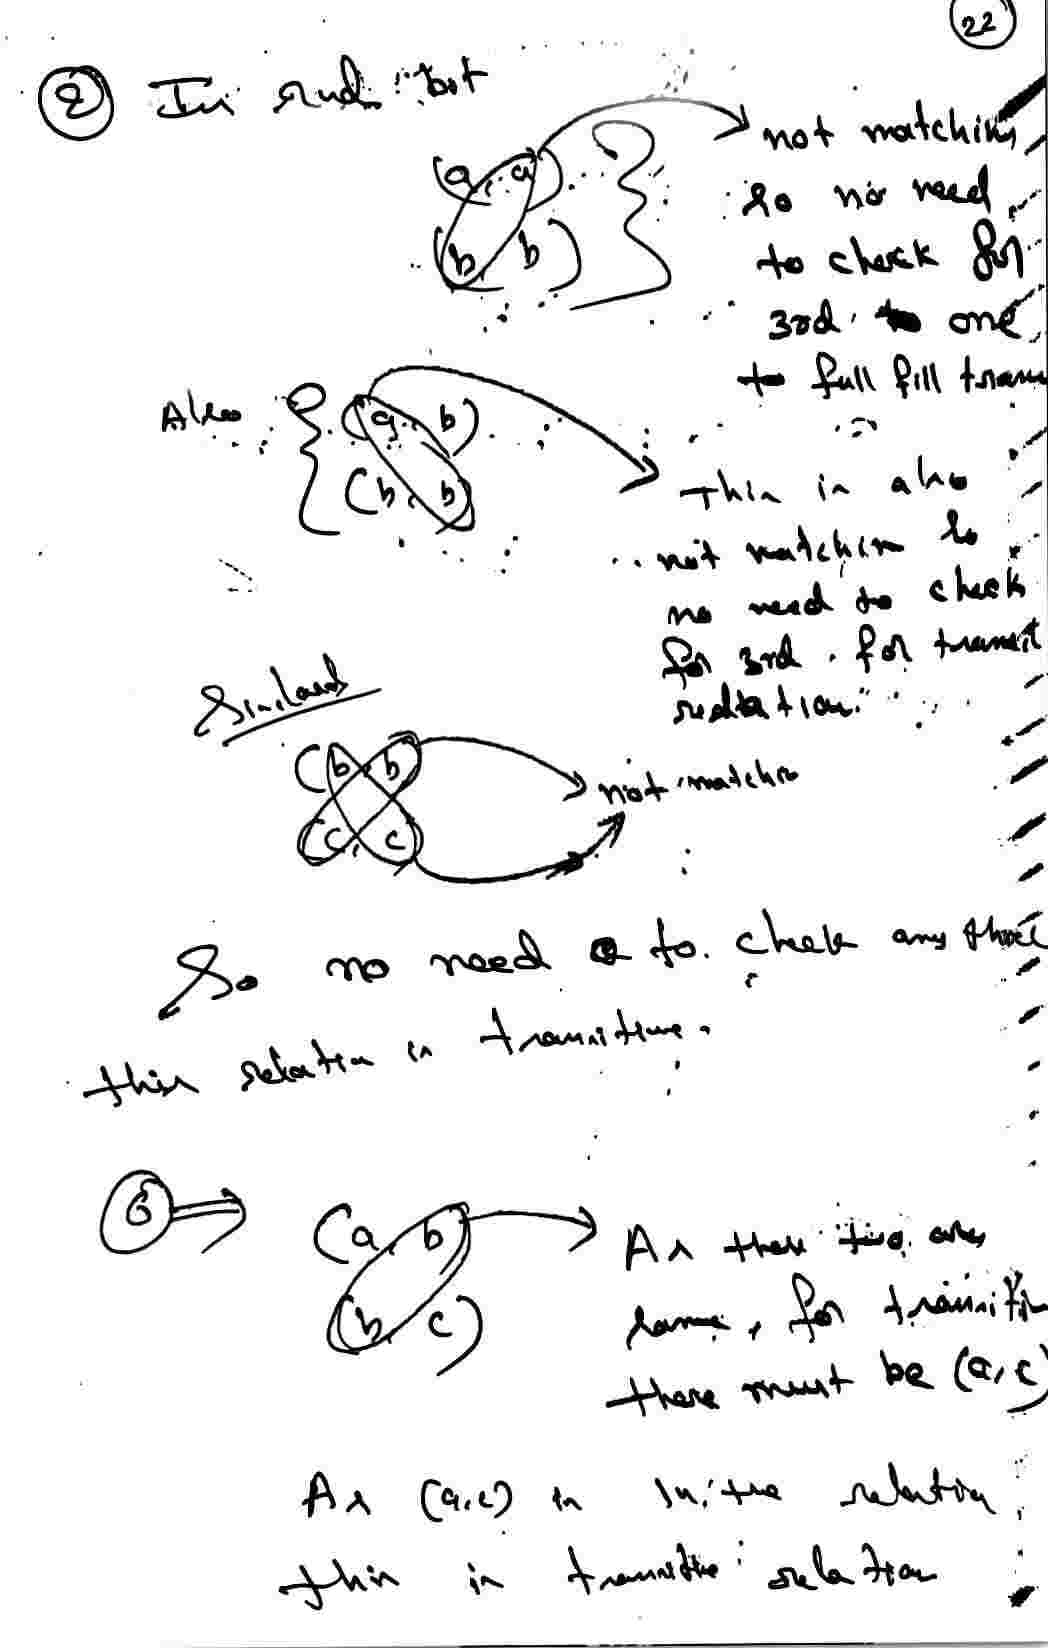 22
2 In
(a, a)
(b, b)
not matching
so no need
to check for
3rd one
to full fill
Also
(a, b)
(b, b)
This is also
not matchin so
no need to check
for 3rd. for transit
relation.
(b, b)
(c, c)
not matchin
So no need to check any
this relation is transitive.
6 ⇒
(a, b)
(b, c)
As these two are
same, for
there must be (a, c)
As (a, c) is in the relation
this is transitive relation